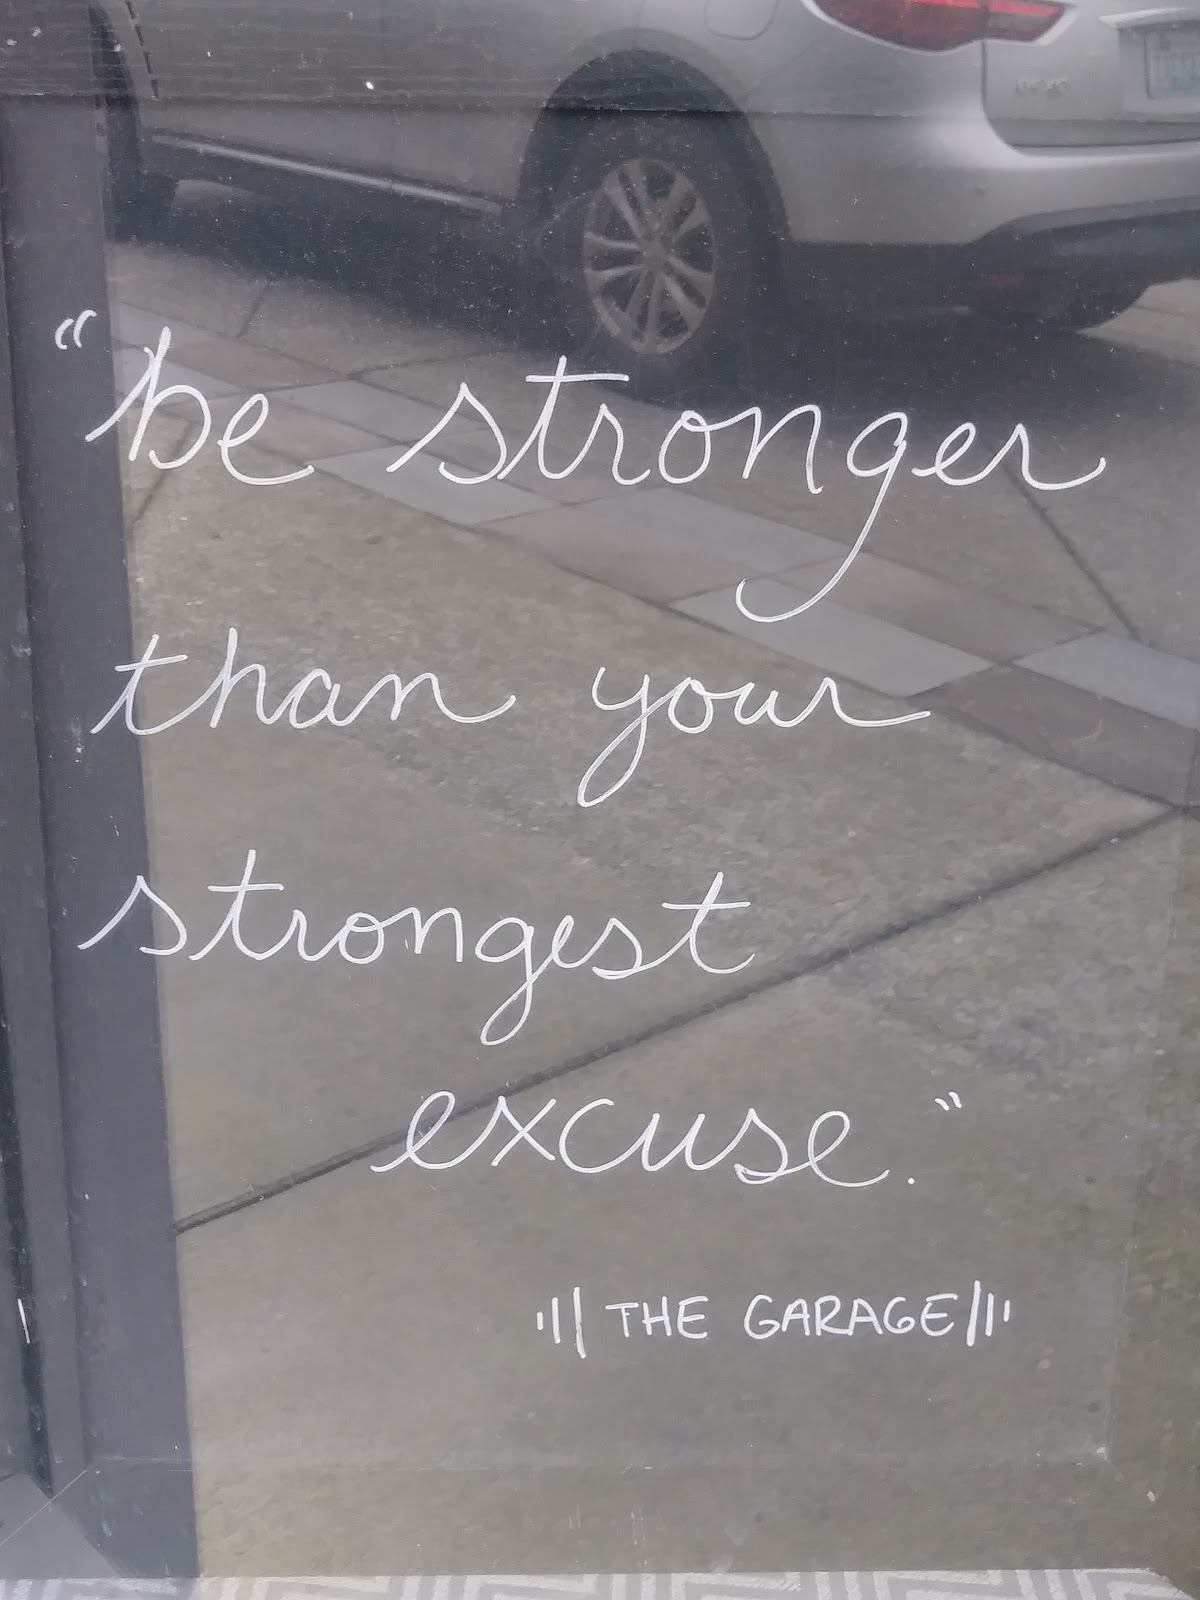 “be stronger
than your
strongest
excuse.”
THE GARAGE